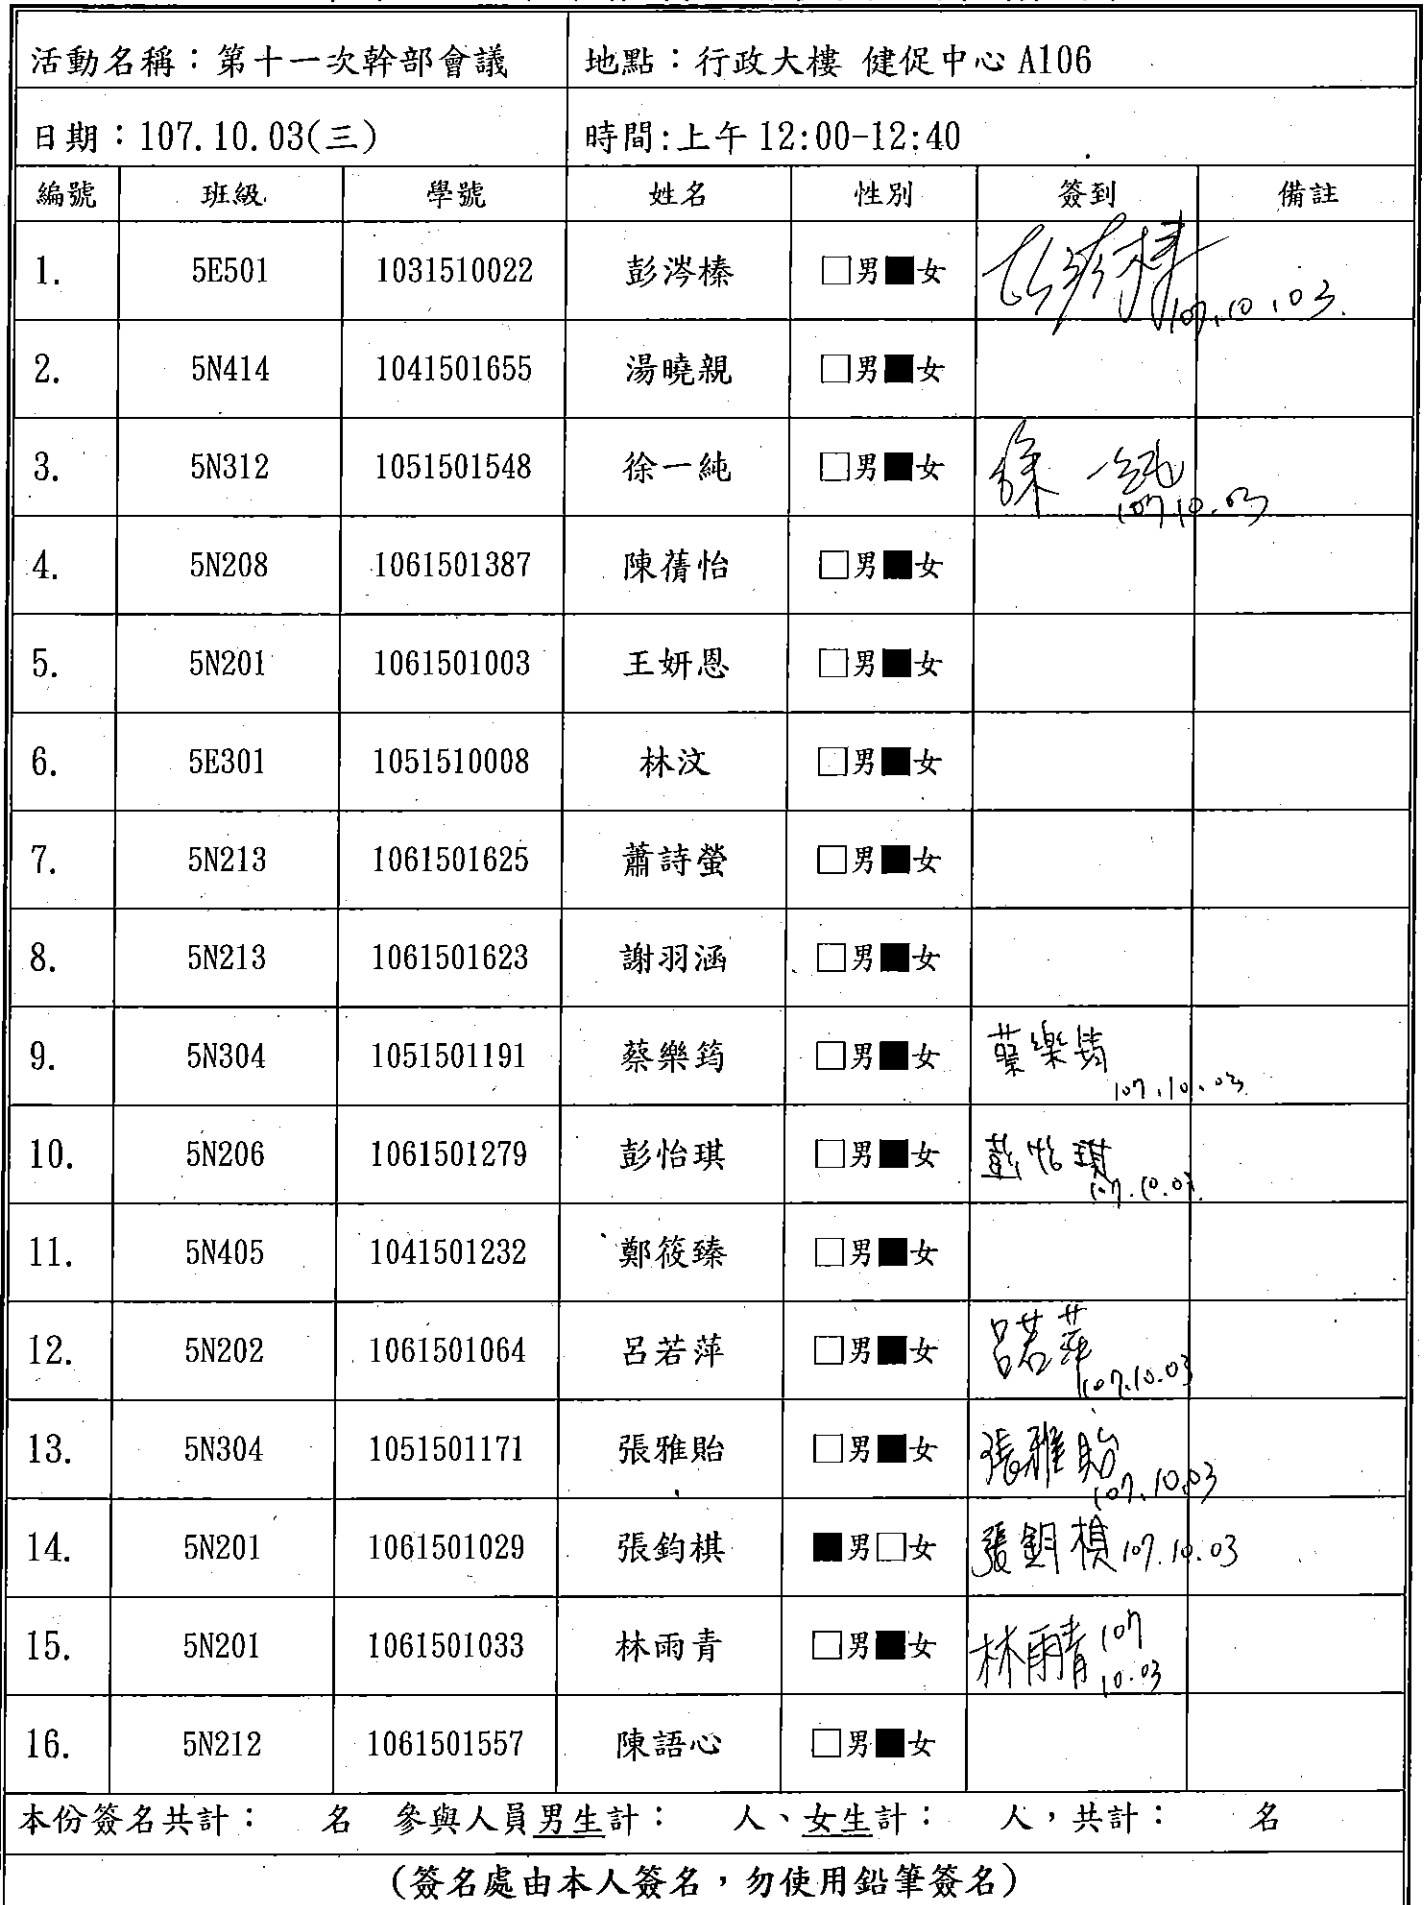 活動名稱：第十一次幹部會議 地點：行政大樓 健促中心 A106
日期：107.10.03(三) 時間:上午 12:00-12:40
編號 班級 學號 姓名 性別 簽到 備註
1. 5E501 1031510022 彭涔榛 □男■女 彭涔榛 107.10.03.
2. 5N414 1041501655 湯曉親 □男■女
3. 5N312 1051501548 徐一純 □男■女 徐一純 107.10.03
4. 5N208 1061501387 陳蒨怡 □男■女
5. 5N201 1061501003 王妍恩 □男■女
6. 5E301 1051510008 林汶 □男■女
7. 5N213 1061501625 蕭詩螢 □男■女
8. 5N213 1061501623 謝羽涵 □男■女
9. 5N304 1051501191 蔡樂筠 □男■女 蔡樂筠 107.10.03
10. 5N206 1061501279 彭怡琪 □男■女 彭怡琪 107.10.03.
11. 5N405 1041501232 鄭筱臻 □男■女
12. 5N202 1061501064 呂若萍 □男■女 呂若萍 107.10.03
13. 5N304 1051501171 張雅貽 □男■女 張雅貽 107.10.03
14. 5N201 1061501029 張鈞棋 ■男□女 張鈞棋 107.10.03
15. 5N201 1061501033 林雨青 □男■女 林雨青 107 10.03
16. 5N212 1061501557 陳語心 □男■女
本份簽名共計： 名 參與人員男生計： 人、女生計： 人，共計： 名
(簽名處由本人簽名，勿使用鉛筆簽名)